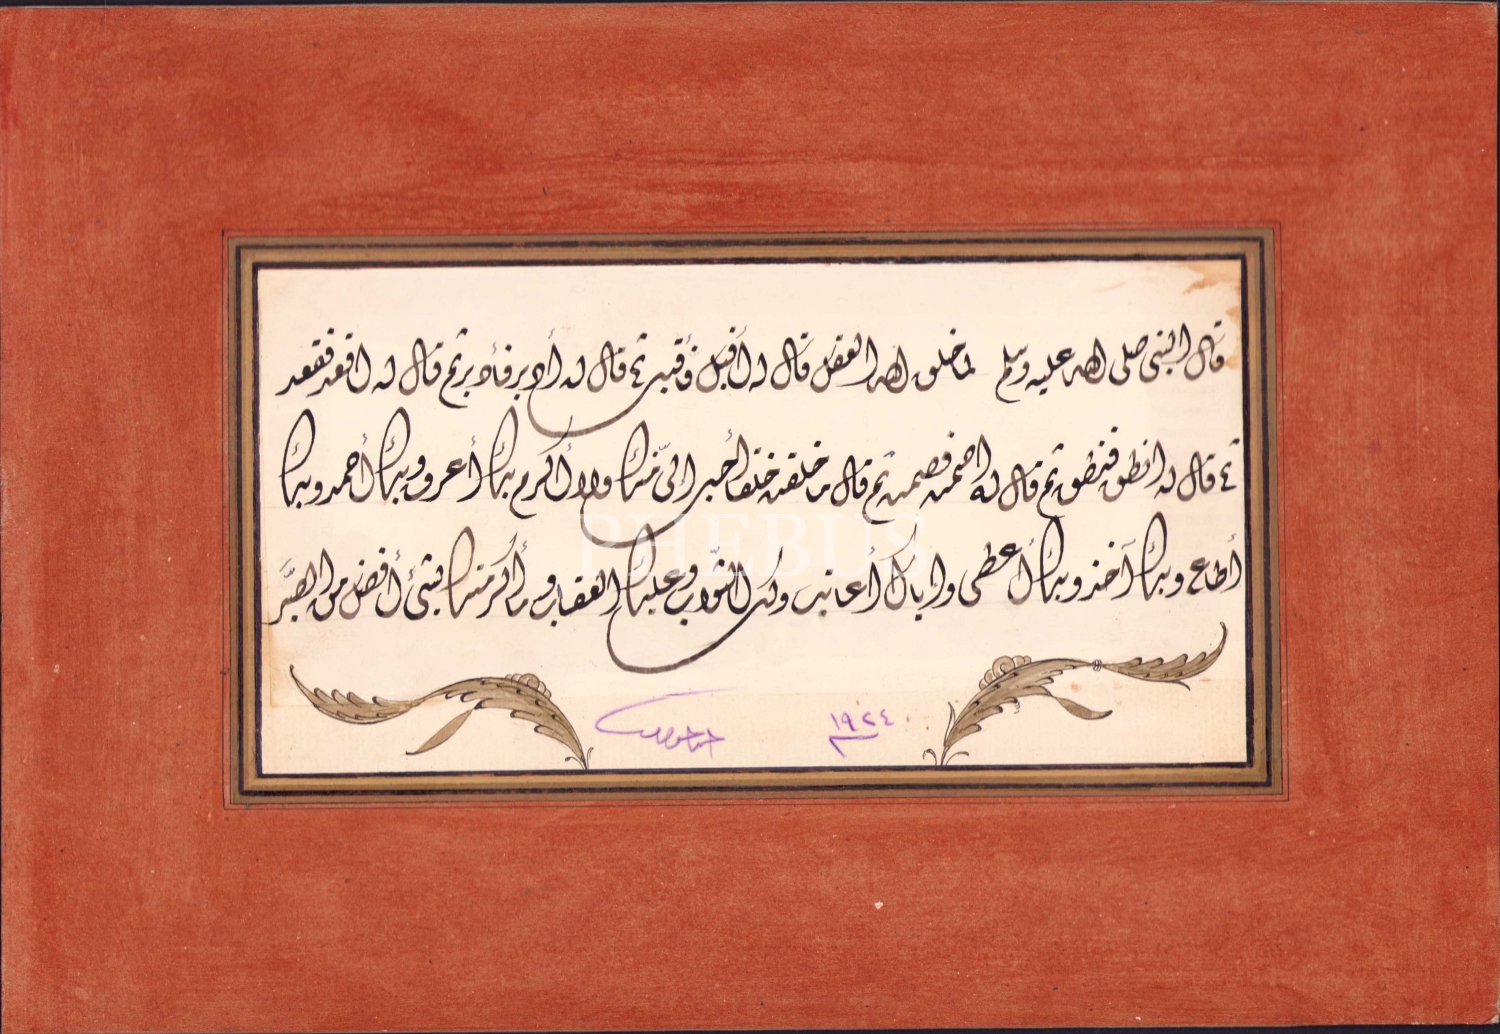 قال النبى صلى الله عليه وسلم لما خلق الله العقل قال له أقبل فأقبل ثم قال له أدبر فأدبر ثم قال له اقعد فقعد
ثم قال له انطق فنطق ثم قال له اصمت فصمت ثم قال ما خلقت خلقا أحب الىّ منك ولا أكرم بك أعرف وبك أحمد وبك
أطاع وبك آخذ وبك أعطى واياك أعاتب ولك الثواب وعليك العقاب وما أكرمتك بشئ أفضل من الصَّبر
١٩٢٤
PHEBUS